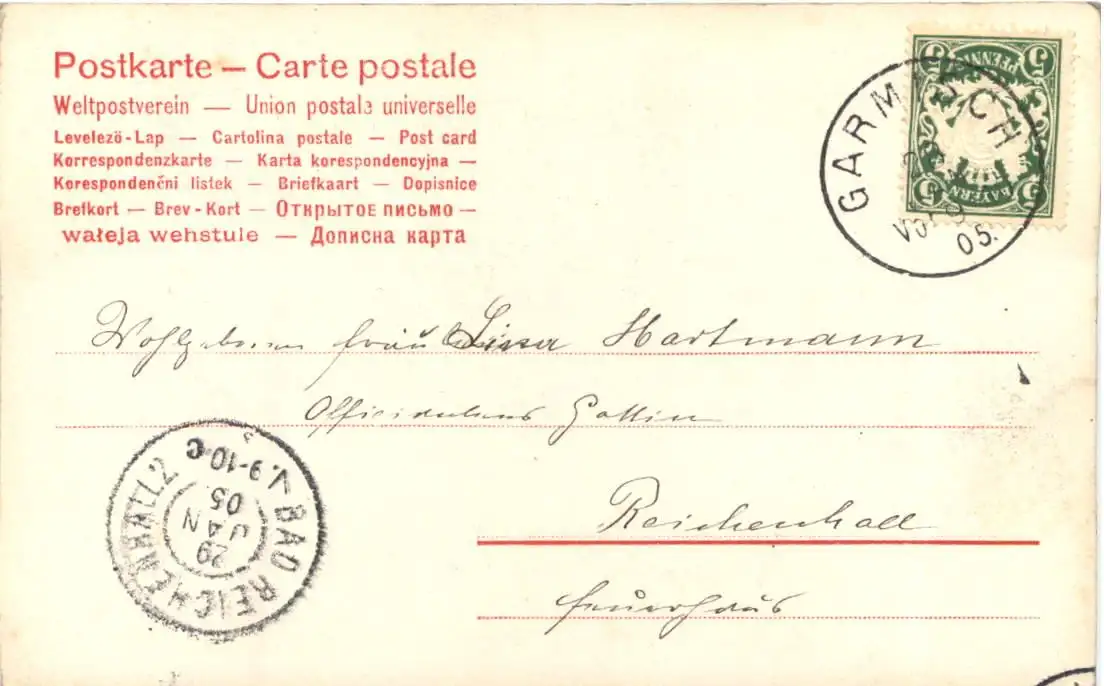 Postkarte — Carte postale
Weltpostverein — Union postale universelle
Levelező-Lap — Cartolina postale — Post card
Korrespondenzkarte — Karta korespondencyjna —
Korespondenční listek — Briefkaart — Dopisnice
Brefkort — Brev-Kort — Открытое письмо —
wałeja wehstule — Дописна карта
5 PFENNIG 5
5 BAYERN 5
GARMISCH
Vor 9
05.
Wohlgeboren Frau Lina Hartmann
Offiziantens Gattin
Reichenhall
Feuerhaus
BAD REICHENHALL 2
29
JAN
05
V. 9-10